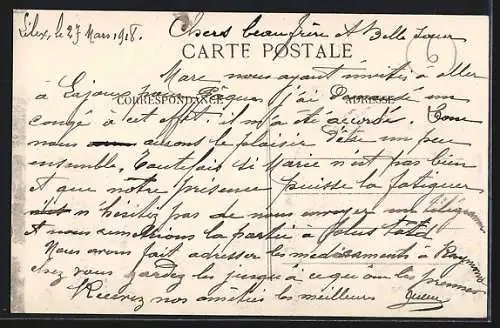 Lélex, le 27 Mars 1918. Chers beau frère et Belle soeur
CARTE POSTALE
Marc nous ayant invités à aller
à Lajoux pour Pâques j'ai Demandé un
CORRESPONDANCE ADRESSE
congé à cet effet. il m'a été accordé. Donc
nous aurons le plaisir D'être un peu
ensemble. Toutefois si Marie n'est pas bien
et que notre présence puisse la fatiguer
n'hésitez pas de nous envoyer un télégramme
et nous remettrons la partie à plus tard.
Nous avons fait adresser les médicaments à Raymond
chez vous gardez les jusqu'à ce qu'on les prenne
Recevez nos amitiés les meilleurs